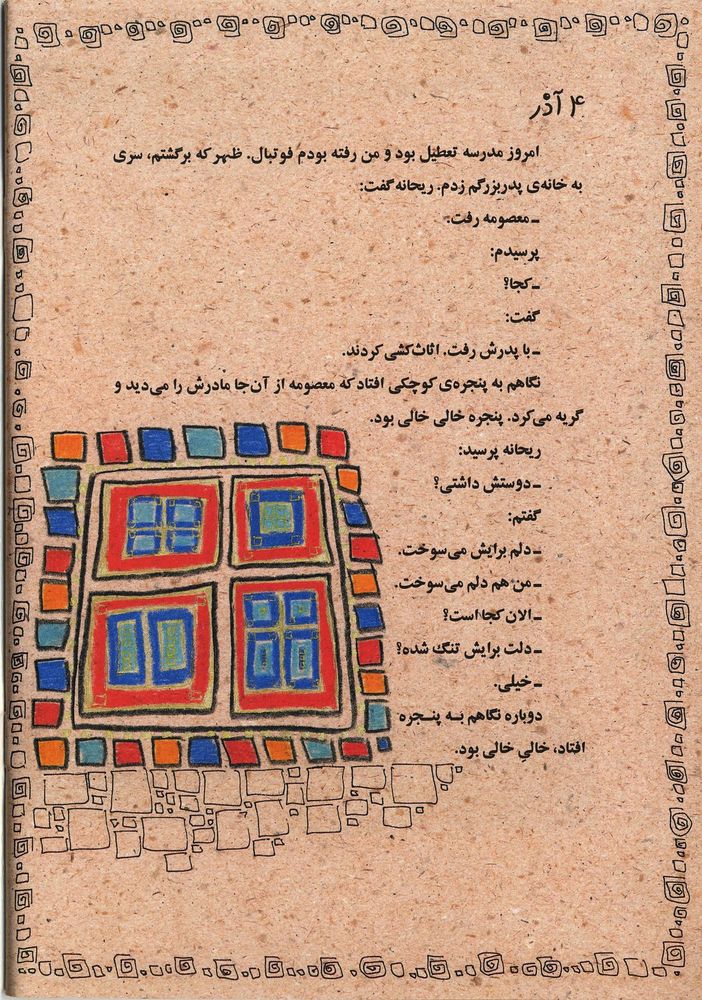 ۴ آذر
امروز مدرسه تعطیل بود و من رفته بودم فوتبال. ظهر که برگشتم، سری
به خانه‌ی پدربزرگم زدم. ریحانه گفت:
ـ معصومه رفت.
پرسیدم:
ـ کجا؟
گفت:
ـ با پدرش رفت. اثاث‌کشی کردند.
نگاهم به پنجره‌ی کوچکی افتاد که معصومه از آن‌جا مادرش را می‌دید و
گریه می‌کرد. پنجره خالی خالی بود.
ریحانه پرسید:
ـ دوستش داشتی؟
گفتم:
ـ دلم برایش می‌سوخت.
ـ من هم دلم می‌سوخت.
ـ الان کجا است؟
ـ دلت برایش تنگ شده؟
ـ خیلی.
دوباره نگاهم به پنجره
افتاد، خالیِ خالی بود.